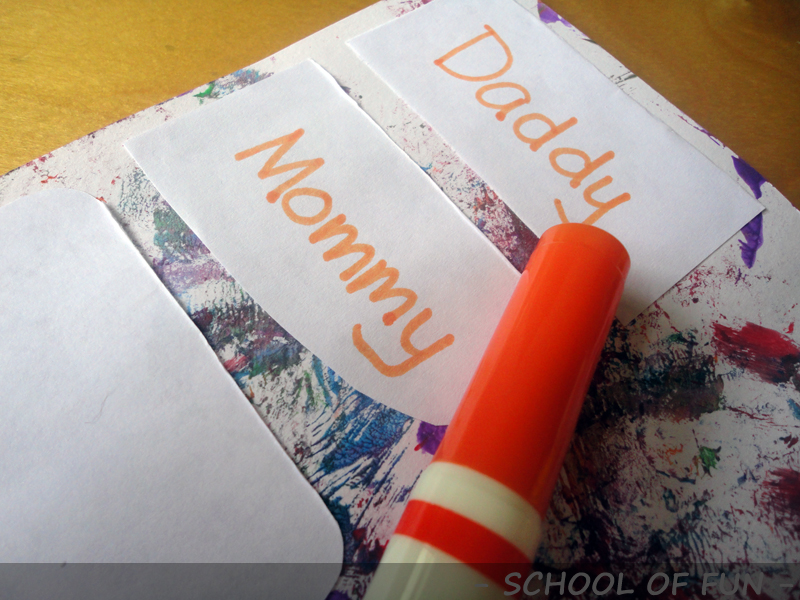 Daddy
Mommy
- SCHOOL OF FUN -